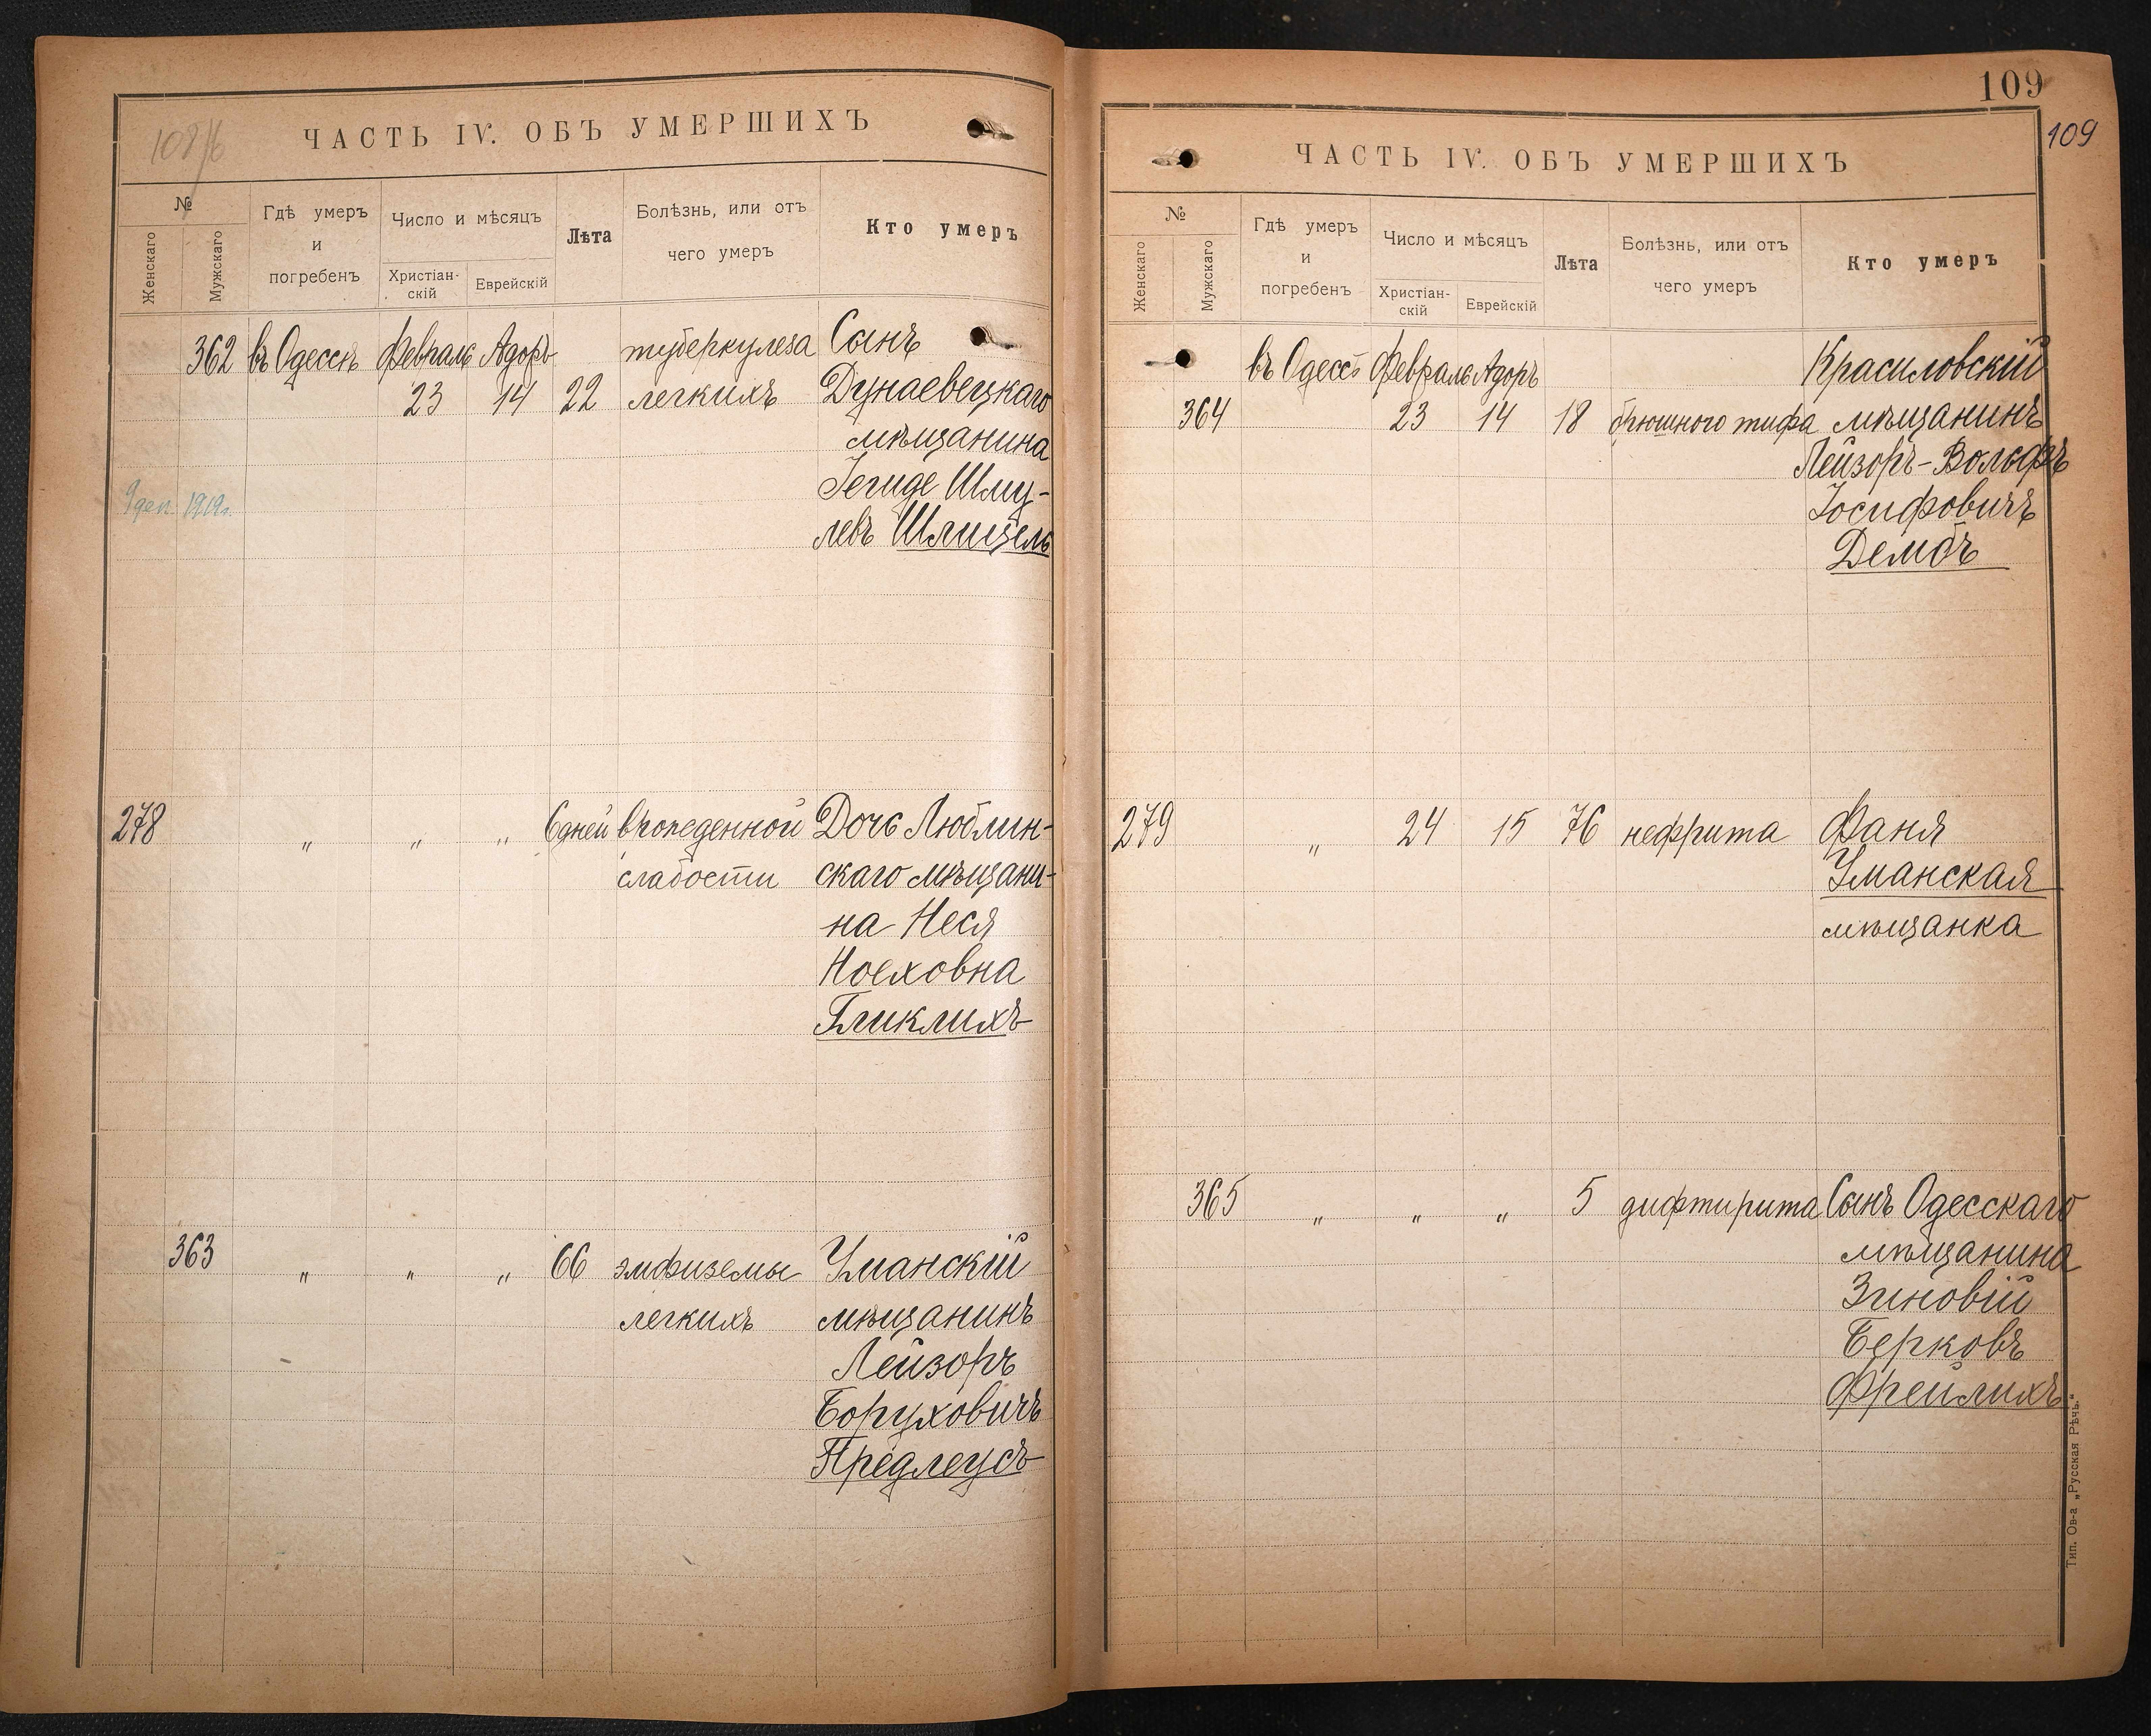 108/б
ЧАСТЬ IV. ОБЪ УМЕРШИХЪ
№
Женскаго
Мужскаго
Гдѣ умеръ
и
погребенъ
Число и мѣсяцъ
Христіан-
скій
Еврейскій
Лѣта
Болѣзнь, или отъ
чего умеръ
Кто умеръ
362 въ Одессѣ Февраль Адоръ туберкулеза Сынъ
23 14 22 легкихъ Дунаевецкаго
мѣщанина
Іегиде Шму-
левъ Шлицель
1919г.
278 " " " 6 дней врожденной Дочь Люблин-
слабости скаго мѣщани-
на Неся
Ноеховна
Гликлихъ
363 " " " 66 эмфиземы Уманскій
легкихъ мѣщанинъ
Лейзоръ
Боруховичъ
Предлеусъ
109
109
ЧАСТЬ IV. ОБЪ УМЕРШИХЪ
№
Женскаго
Мужскаго
Гдѣ умеръ
и
погребенъ
Число и мѣсяцъ
Христіан-
скій
Еврейскій
Лѣта
Болѣзнь, или отъ
чего умеръ
Кто умеръ
въ Одессѣ Февраль Адоръ Красиловскій
364 23 14 18 брюшного тифа мѣщанинъ
Лейзоръ-Вольфъ
Іосифовичъ
Дембъ
279 " 24 15 76 нефрита Фаня
Уманская
мѣщанка
365 " " " 5 дифтирита Сынъ Одесскаго
мѣщанина
Зиновій
Берковъ
Фрейлихъ
Тип. Ов-а „Русская Рѣчь."